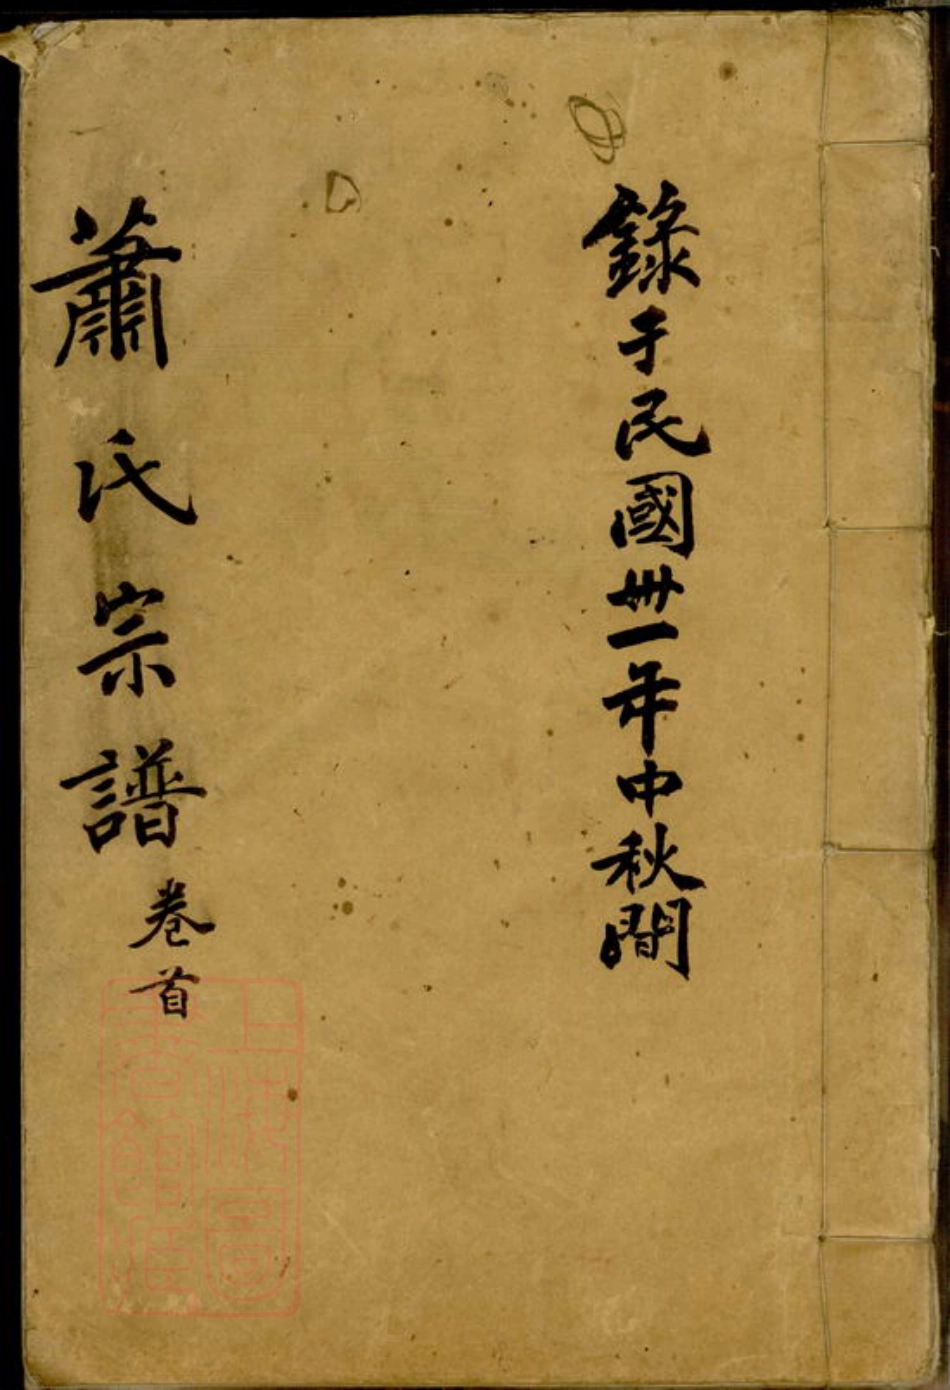 錄于民國卅一年中秋間
蕭氏宗譜 卷首
上海圖
書館藏